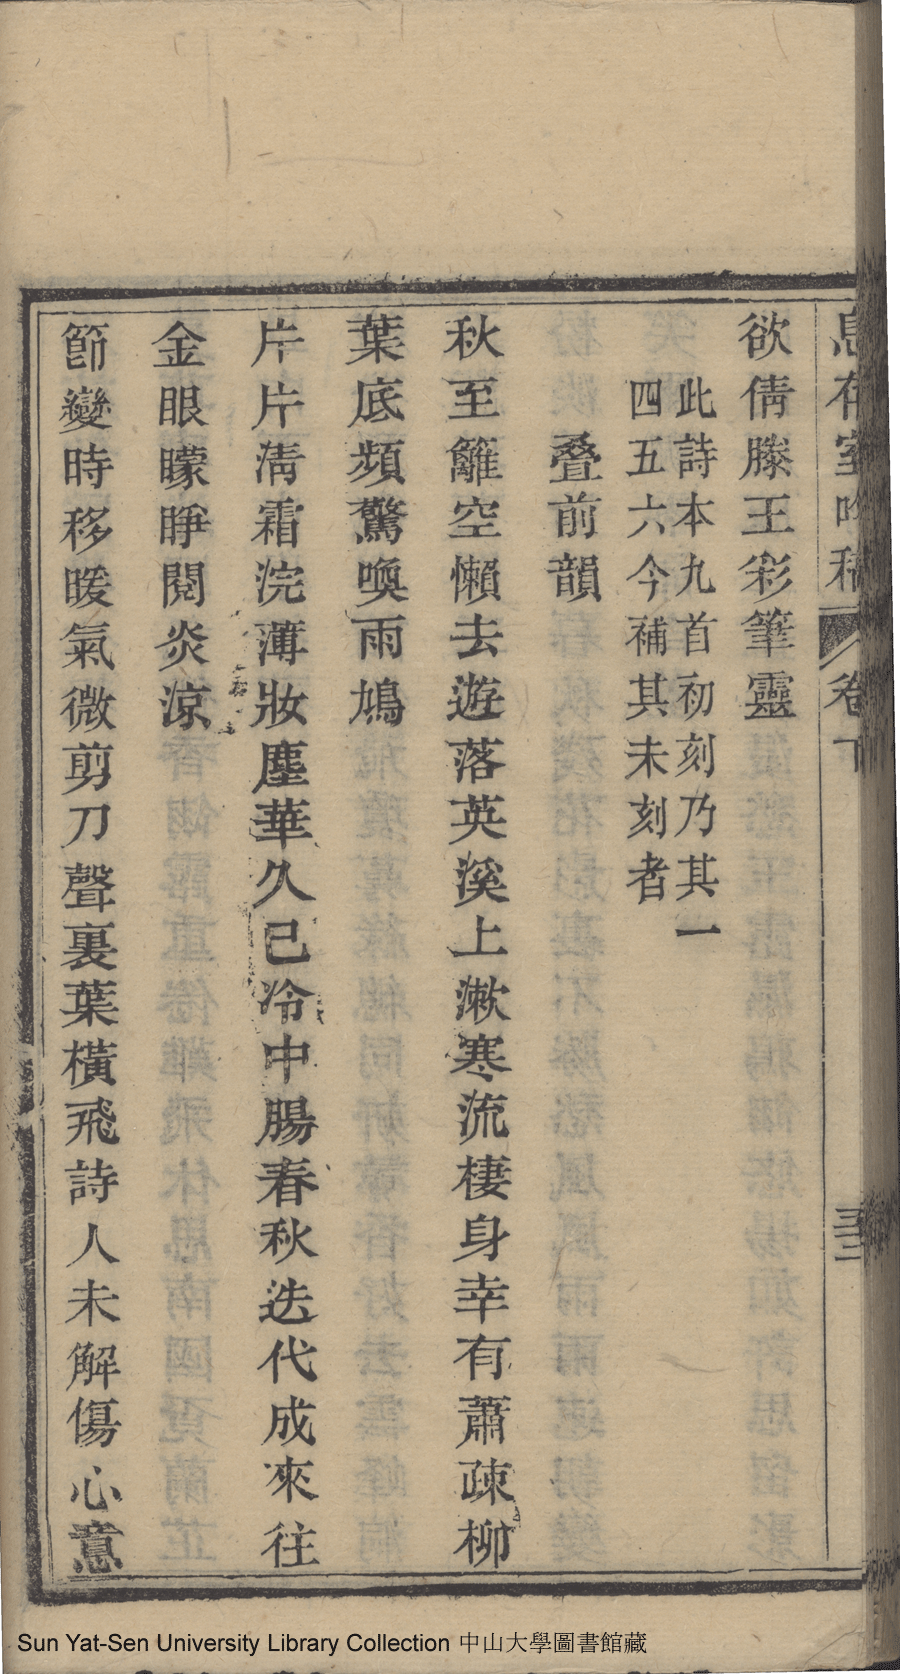 卷下
欲倩滕王彩筆靈
此詩本九首初刻乃其一
四五六今補其未刻者
叠前韻
秋至籬空懶去遊落英溪上漱寒流棲身幸有蕭疎柳
葉底頻驚喚雨鳩
片片淸霜浣薄妝塵華久已冷中腸春秋迭代成來往
金眼矇睜閱炎涼
節變時移暖氣微剪刀聲裏葉橫飛詩人未解傷心意
Sun Yat-Sen University Library Collection 中山大學圖書館藏